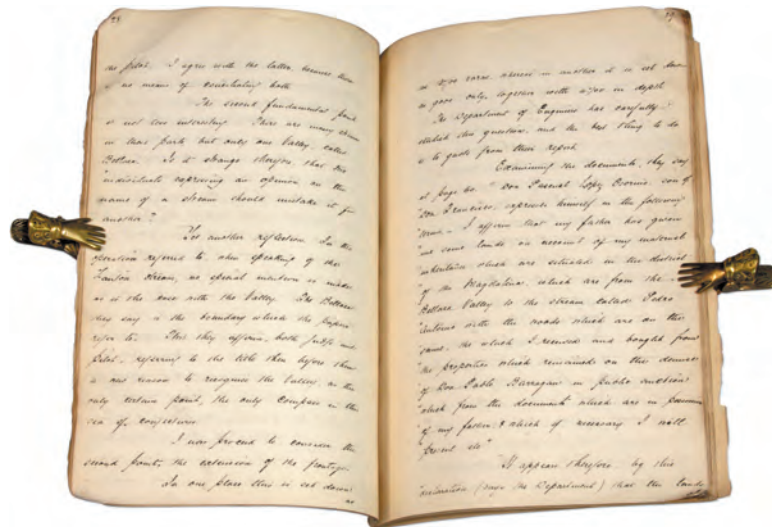 28
the pilot. I agree with the latter because there
is no means of conciliating both
The second fundamental point
is not less interesting There are many streams
in that part but only one Valley called
Bellaca. Is it strange therefore that two
individuals expressing an opinion on the
name of a stream should mistake it for
another?
Yet another reflection. In the
operation referred to, when speaking of the
stream, no special mention is made
as is the case with the Valley. The Bellaca
they say is the boundary which the papers
refer to. This they affirm, both judge and
pilot, referring to the title then before them
is one reason to recognise the Valley, as the
only certain point, the only compass in the
sea of conjectures.
I now proceed to consider the
second point, the extension of the frontage
In one place this is set down
as
29
as varas, whereas in another it is set down
as only, together with in depth
The Department of Engineers has carefully
studied this question, and the best thing to do
is to quote from their report
Examining the documents, they say
at page " Don Pascual Lopez Osornio, son of
"Don Francisco, expresses himself in the following
"terms - I affirm that my father has given
"me some lands on account of my maternal
"inheritance which are situated in the district
"of the Magdalena, which are from the
"Bellaca Valley to the stream called Pedro
"Antonio with the woods which are on the
"same, the which I received and bought from
"the properties which remained on the
"of Don Pablo Barragan in public auction
"which from the documents which are in possession
"of my father & which if necessary I will
"present etc"
"It appears therefore by this
"declaration (says the Department) that the lands